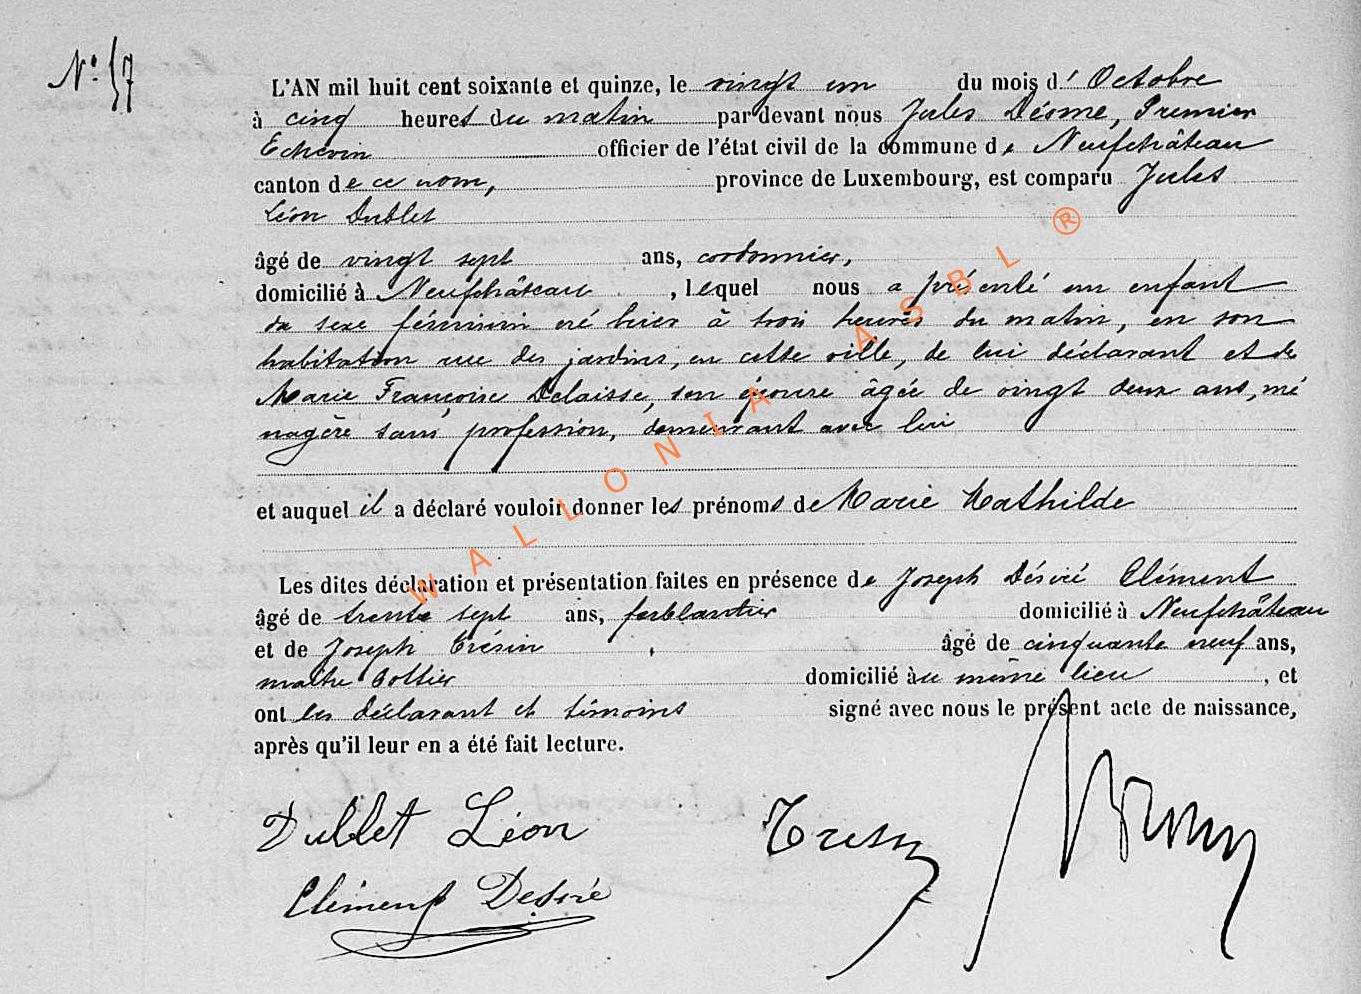 N° 57
L'AN mil huit cent soixante et quinze, le vingt un du mois d' Octobre
à cinq heures du matin par devant nous Jules Désome, Premier
Echevin officier de l'état civil de la commune de Neufchâteau
canton de ce nom, province de Luxembourg, est comparu Jules
Léon Dublet
âgé de vingt sept ans, cordonnier,
domicilié à Neufchâteau , lequel nous a présenté un enfant
du sexe féminin né hier à trois heures du matin, en son
habitation rue des jardins, en cette ville, de lui déclarant et de
Marie Françoise Delaisse, son épouse âgée de vingt deux ans, mé
nagère sans profession, demeurant avec lui
et auquel il a déclaré vouloir donner les prénoms de Marie Mathilde
Les dites déclaration et présentation faites en présence de Joseph Désiré Clément
âgé de trente sept ans, ferblantier domicilié à Neufchâteau
et de Joseph Trésin , âgé de cinquante neuf ans,
maître Cottier domicilié au même lieu , et
ont les déclarant et témoins signé avec nous le présent acte de naissance,
après qu'il leur en a été fait lecture.
Dublet Léon
Clément Desiré
WALLONIA ASBL ®